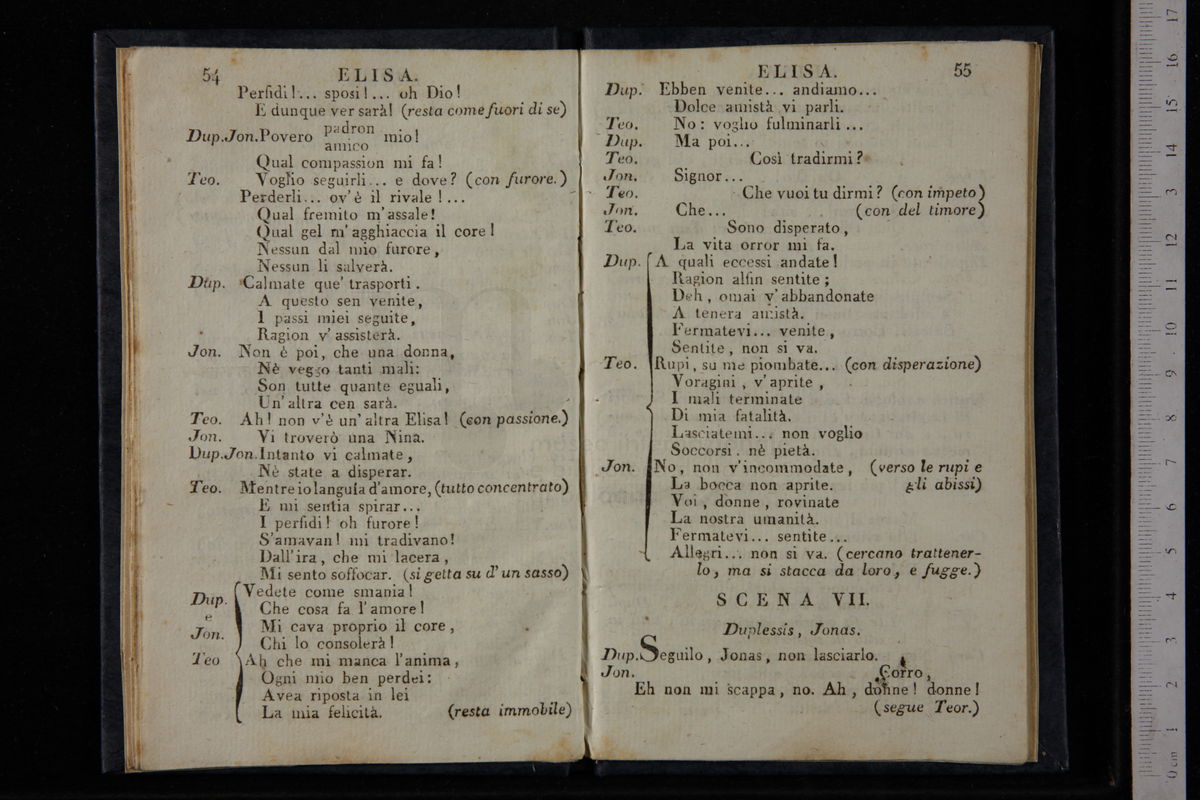 54 ELISA.
Perfidi!... sposi!... oh Dio!
E dunque ver sarà! (resta come fuori di se)
padron
Dup.Jon.Povero mio!
amico
Qual compassion mi fa!
Teo. Voglio seguirli... e dove? (con furore.)
Perderli... ov'è il rivale!...
Qual fremito m'assale!
Qual gel m'agghiaccia il core!
Nessun dal mio furore,
Nessun li salverà.
Dup. Calmate que' trasporti.
A questo sen venite,
I passi miei seguite,
Ragion v'assisterà.
Jon. Non è poi, che una donna,
Nè veggo tanti mali:
Son tutte quante eguali,
Un'altra cen sarà.
Teo. Ah! non v'è un'altra Elisa! (con passione.)
Jon. Vi troverò una Nina.
Dup.Jon.Intanto vi calmate,
Nè state a disperar.
Teo. Mentre io languía d'amore, (tutto concentrato)
E mi sentia spirar...
I perfidi! oh furore!
S'amavan! mi tradivano!
Dall'ira, che mi lacera,
Mi sento soffocar. (si getta su d'un sasso)
Dup. Vedete come smania!
e Che cosa fa l'amore!
Jon. Mi cava proprio il core,
Chi lo consolerà!
Teo Ah che mi manca l'anima,
Ogni mio ben perdei:
Avea riposta in lei
La mia felicità. (resta immobile)
ELISA. 55
Dup. Ebben venite... andiamo...
Dolce amistà vi parli.
Teo. No: voglio fulminarli...
Dup. Ma poi...
Teo. Così tradirmi?
Jon. Signor...
Teo. Che vuoi tu dirmi? (con impeto)
Jon. Che... (con del timore)
Teo. Sono disperato,
La vita orror mi fa.
Dup. A quali eccessi andate!
Ragion alfin sentite;
Deh, omai v'abbandonate
A tenera amistà.
Fermatevi... venite,
Sentite, non si va.
Teo. Rupi, su me piombate... (con disperazione)
Voragini, v'aprite,
I mali terminate
Di mia fatalità.
Lasciatemi... non voglio
Soccorsi. nè pietà.
Jon. No, non v'incommodate, (verso le rupi e
La bocca non aprite. gli abissi)
Voi, donne, rovinate
La nostra umanità.
Fermatevi... sentite...
Allegri... non si va. (cercano trattener-
lo, ma si stacca da loro, e fugge.)
SCENA VII.
Duplessis, Jonas.
Dup. Seguilo, Jonas, non lasciarlo.
Jon. Corro,
Eh non mi scappa, no. Ah, donne! donne!
(segue Teor.)
0 cm 1 2 3 4 5 6 7 8 9 10 11 12 13 14 15 16 17